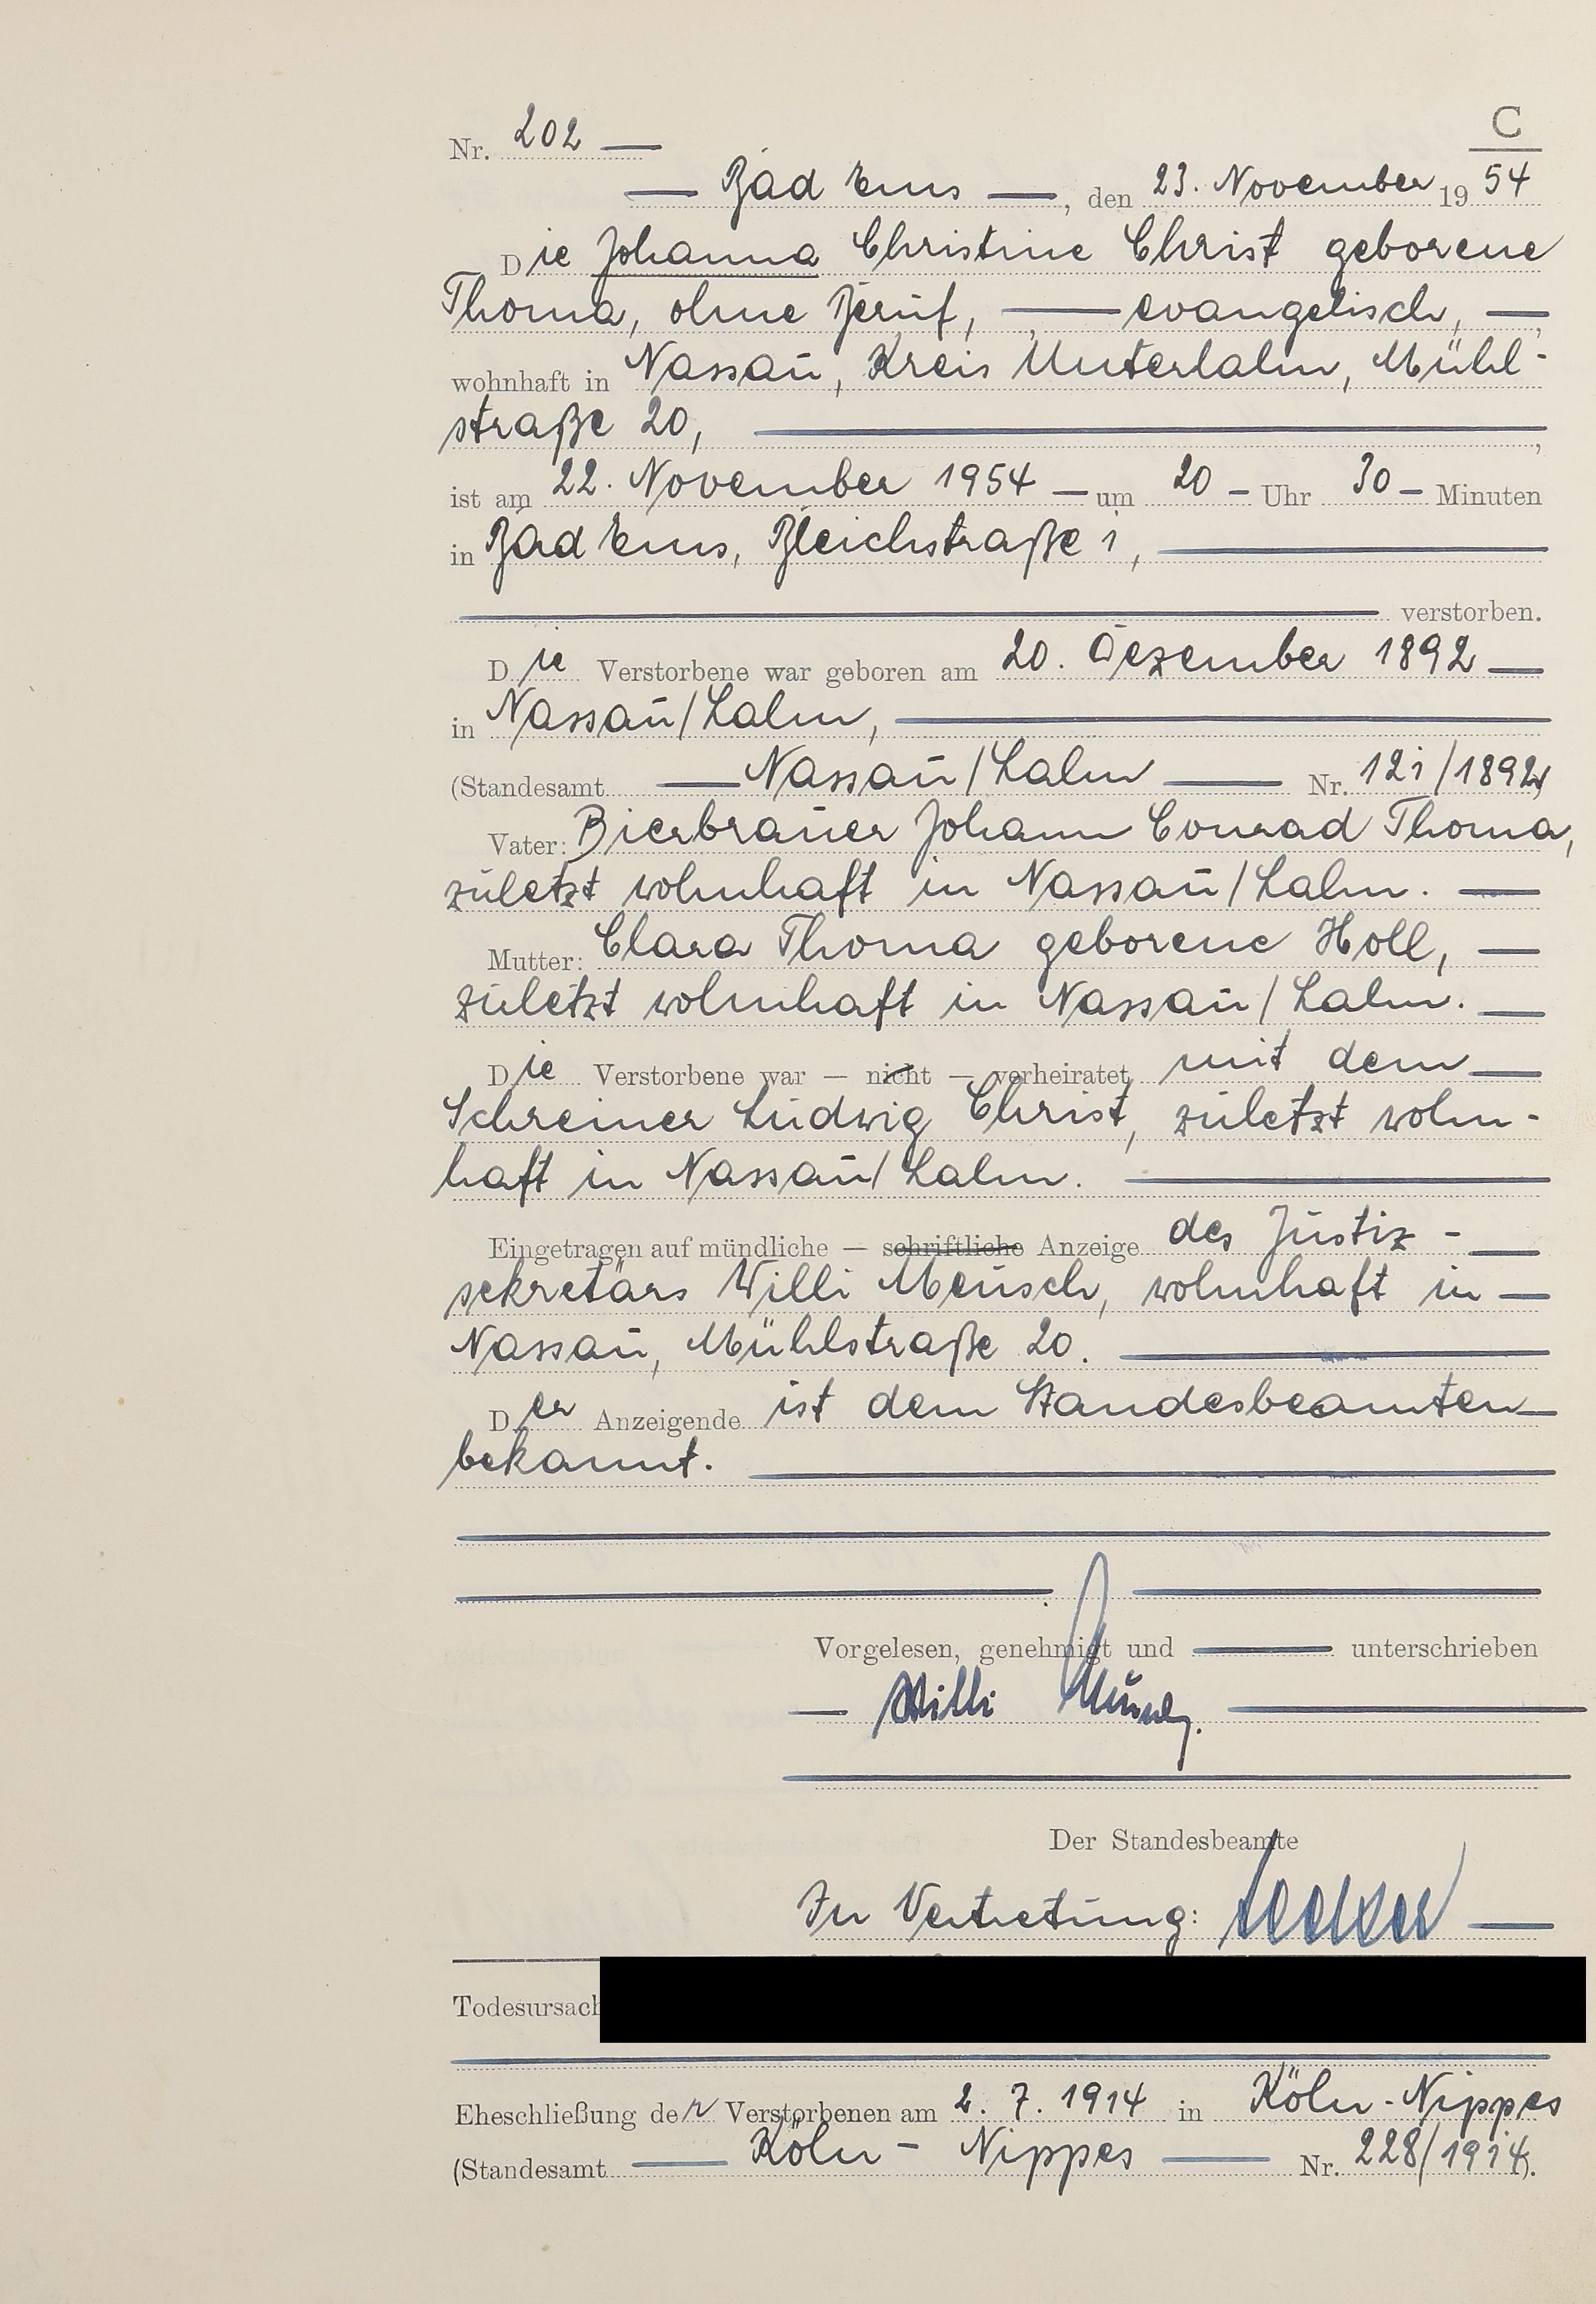 C
Nr. 202 —
— Bad Ems —, den 23. November 1954
Die Johanna Christine Christ geborene
Thoma, ohne Beruf, — evangelisch, —,
wohnhaft in Nassau, Kreis Unterlahn, Mühl-
straße 20, —,
ist am 22. November 1954 — um 20 — Uhr 30 — Minuten
in Bad Ems, Bleichstraße 1, —
— verstorben.
Die Verstorbene war geboren am 20. Dezember 1892 —
in Nassau/Lahn, —
(Standesamt — Nassau/Lahn — Nr. 121/1892)
Vater: Bierbrauer Johann Conrad Thoma,
zuletzt wohnhaft in Nassau/Lahn. —
Mutter: Clara Thoma geborene Holl, —
zuletzt wohnhaft in Nassau/Lahn. —
Die Verstorbene war — nicht — verheiratet mit dem —
Schreiner Ludwig Christ, zuletzt wohn-
haft in Nassau/Lahn. —
Eingetragen auf mündliche — schriftliche Anzeige des Justiz- —
sekretärs Willi Meusch, wohnhaft in —
Nassau, Mühlstraße 20. —
Der Anzeigende ist dem Standesbeamten —
bekannt. —
Vorgelesen, genehmigt und — unterschrieben
— Willi Meusch. —
Der Standesbeamte
In Vertretung: —
Todesursach
Eheschließung der Verstorbenen am 2. 7. 1914 in Köln-Nippes
(Standesamt — Köln - Nippes — Nr. 228/1914).